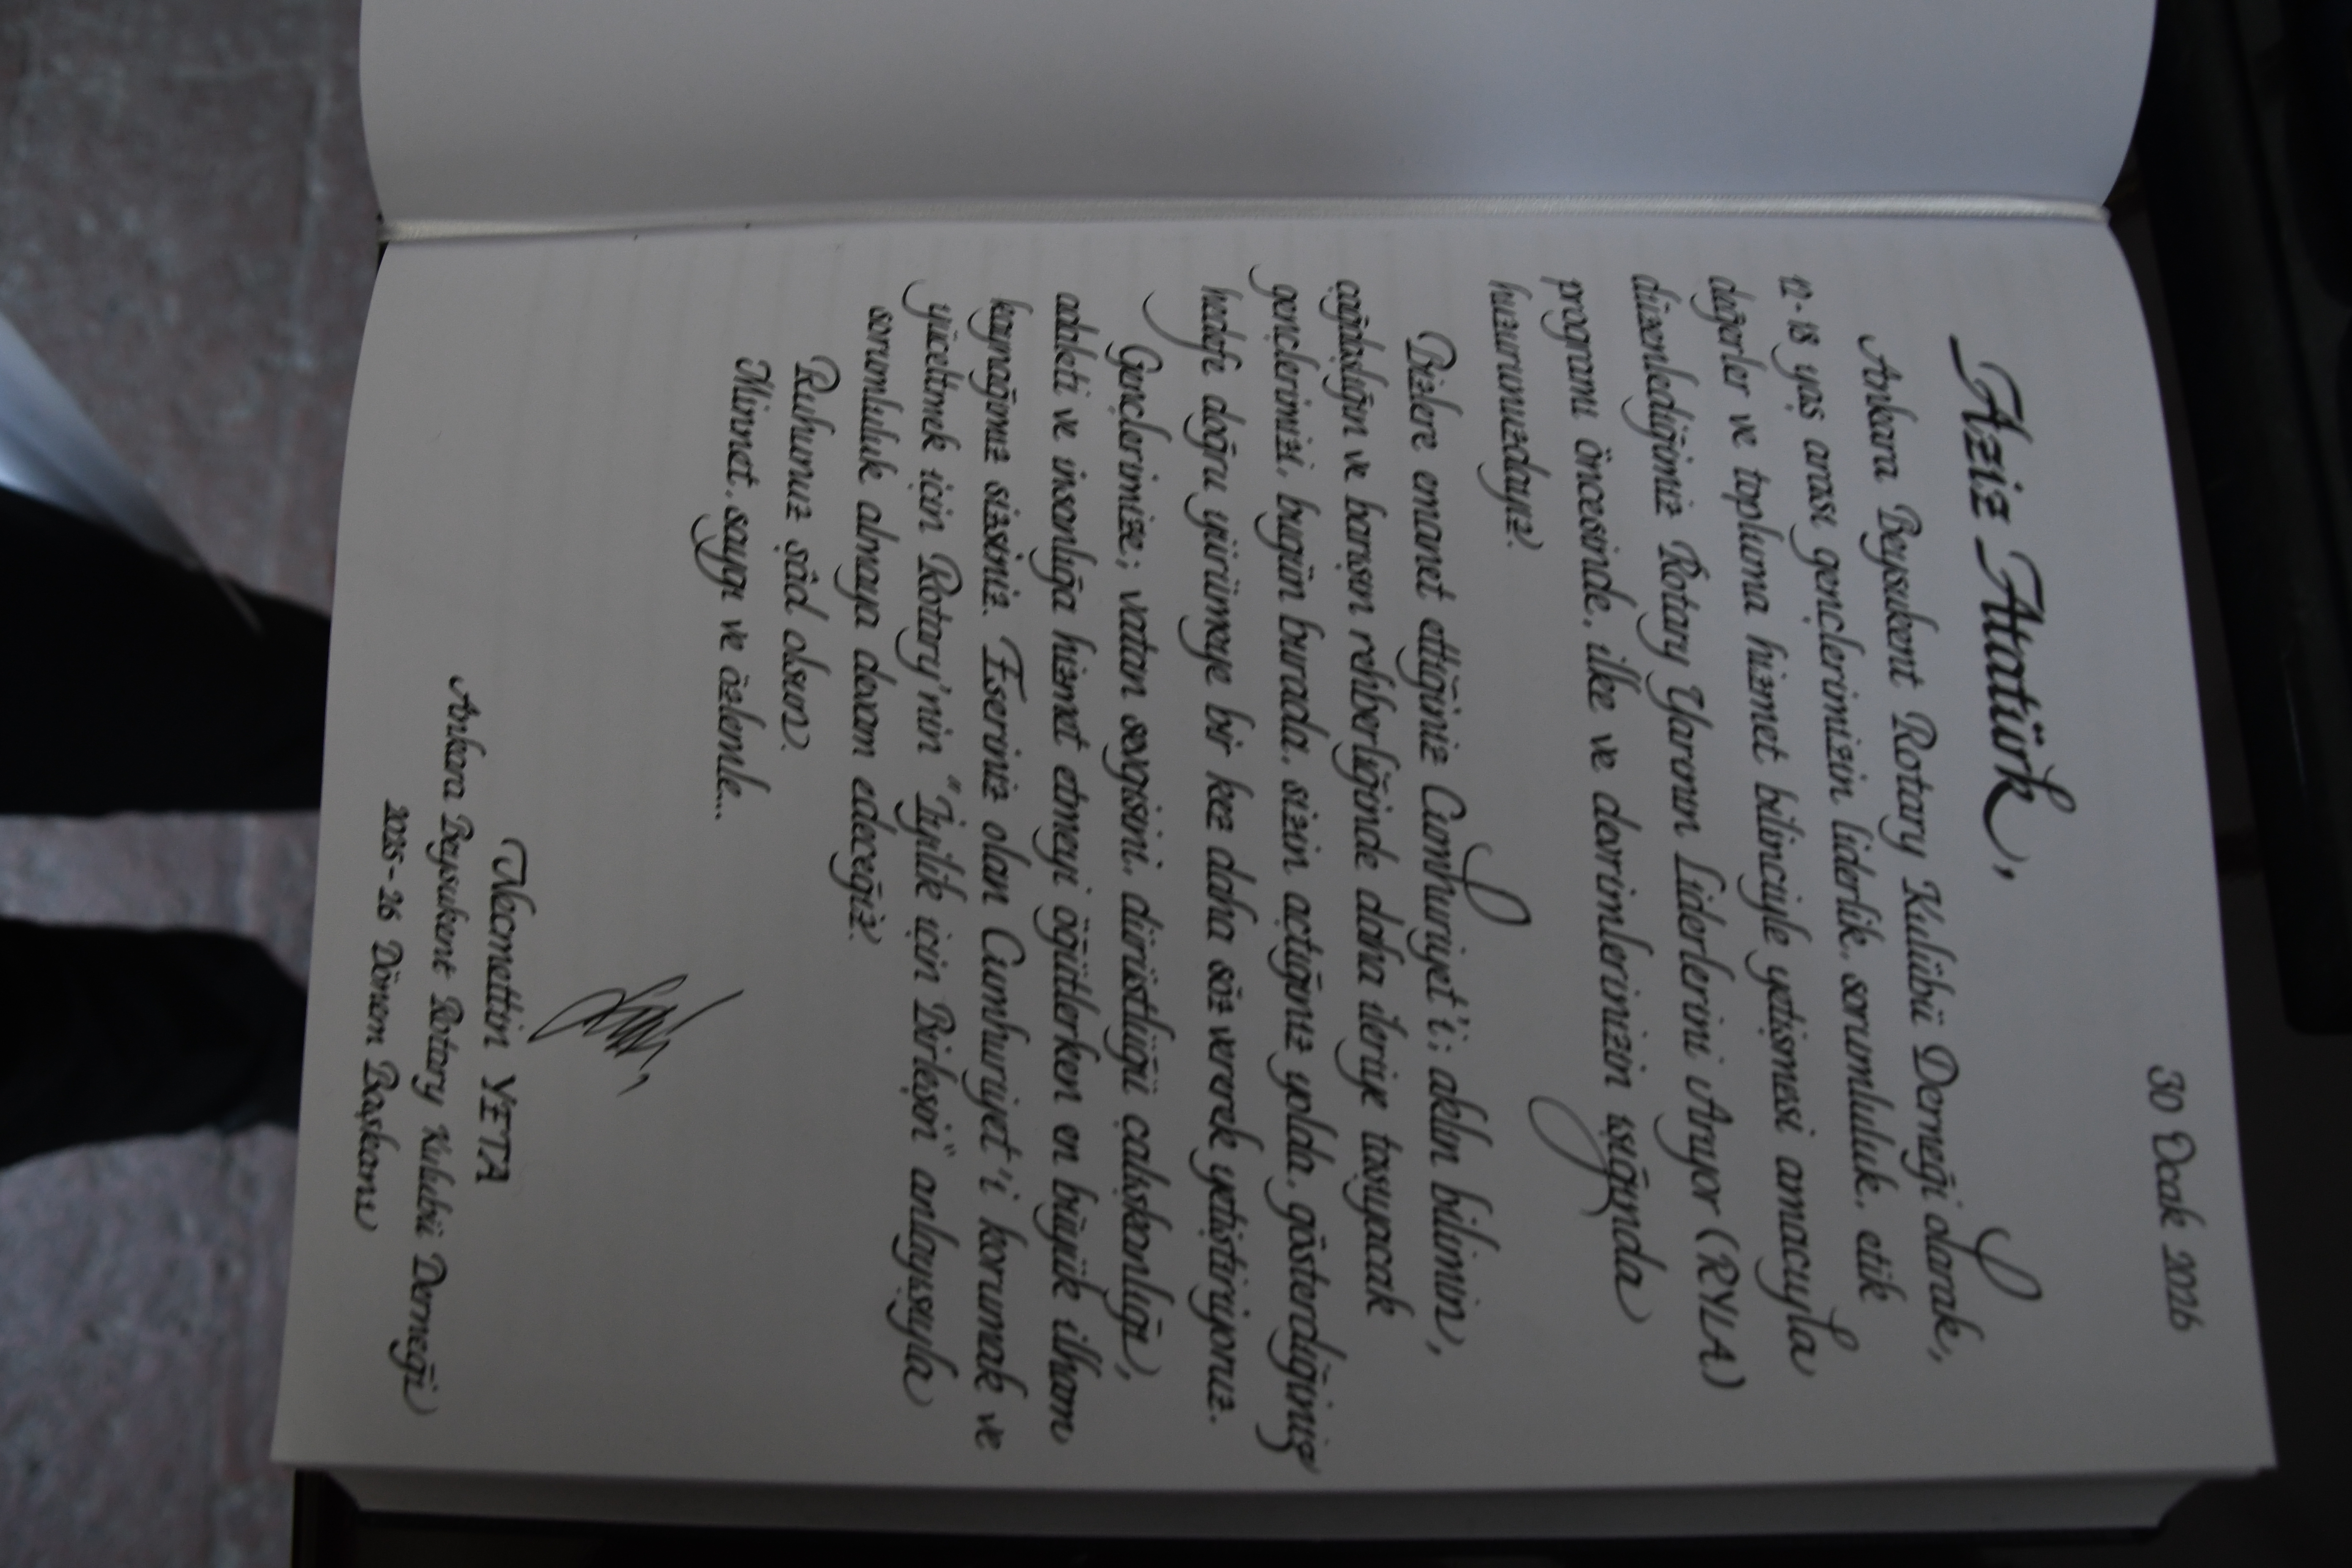 30 Ocak 2026
Aziz Atatürk,
Ankara Beysukent Rotary Kulübü Derneği olarak,
12-18 yaş arası gençlerimizin liderlik, sorumluluk, etik
değerler ve topluma hizmet bilinciyle yetişmesi amacıyla
düzenlediğimiz Rotary Yarının Liderlerini Arıyor (RYLA)
programı öncesinde, ilke ve devrimlerinizin ışığında
huzurunuzdayız.
Bizlere emanet ettiğiniz Cumhuriyet'i; aklın bilimin,
çağdaşlığın ve barışın rehberliğinde daha ileriye taşıyacak
gençlerimizi, bugün burada, sizin açtığınız yolda, gösterdiğiniz
hedefe doğru yürümeye bir kez daha söz vererek yetiştiriyoruz.
Gençlerimize; vatan sevgisini, dürüstlüğü çalışkanlığı,
adaleti ve insanlığa hizmet etmeyi öğütlerken en büyük ilham
kaynağımız sizsiniz. Eseriniz olan Cumhuriyet'i korumak ve
yüceltmek için Rotary'nin "İyilik için Birleşin" anlayışıyla
sorumluluk almaya devam edeceğiz.
Ruhunuz şâd olsun.
Minnet, saygı ve özlemle...
Necmettin YETA
Ankara Beysukent Rotary Kulubü Derneği
2025-26 Dönem Başkanı